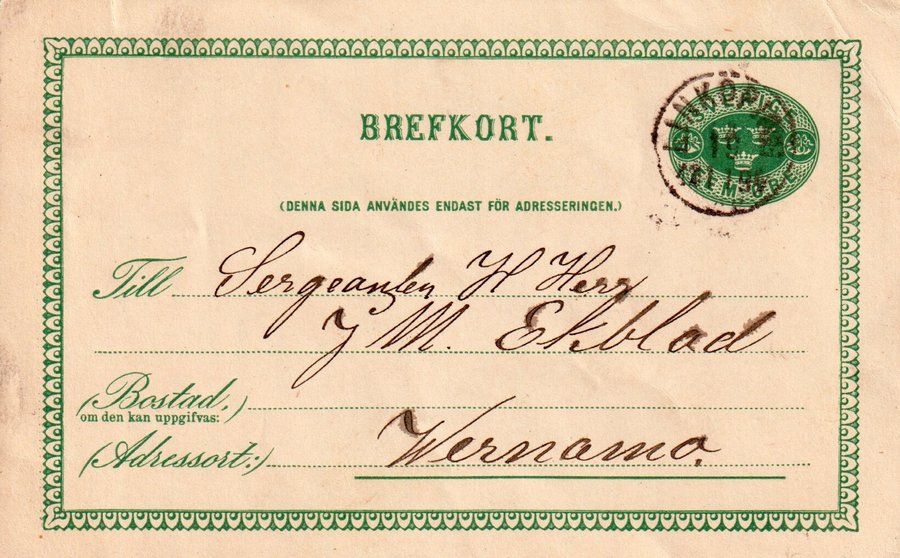 BREFKORT.
LINKÖPING
(DENNA SIDA ANVÄNDES ENDAST FÖR ADRESSERINGEN.)
Till Sergeanten H Herr
J M. Ekblad
(Bostad,)
om den kan uppgifvas:
(Adressort:) Wernamo.